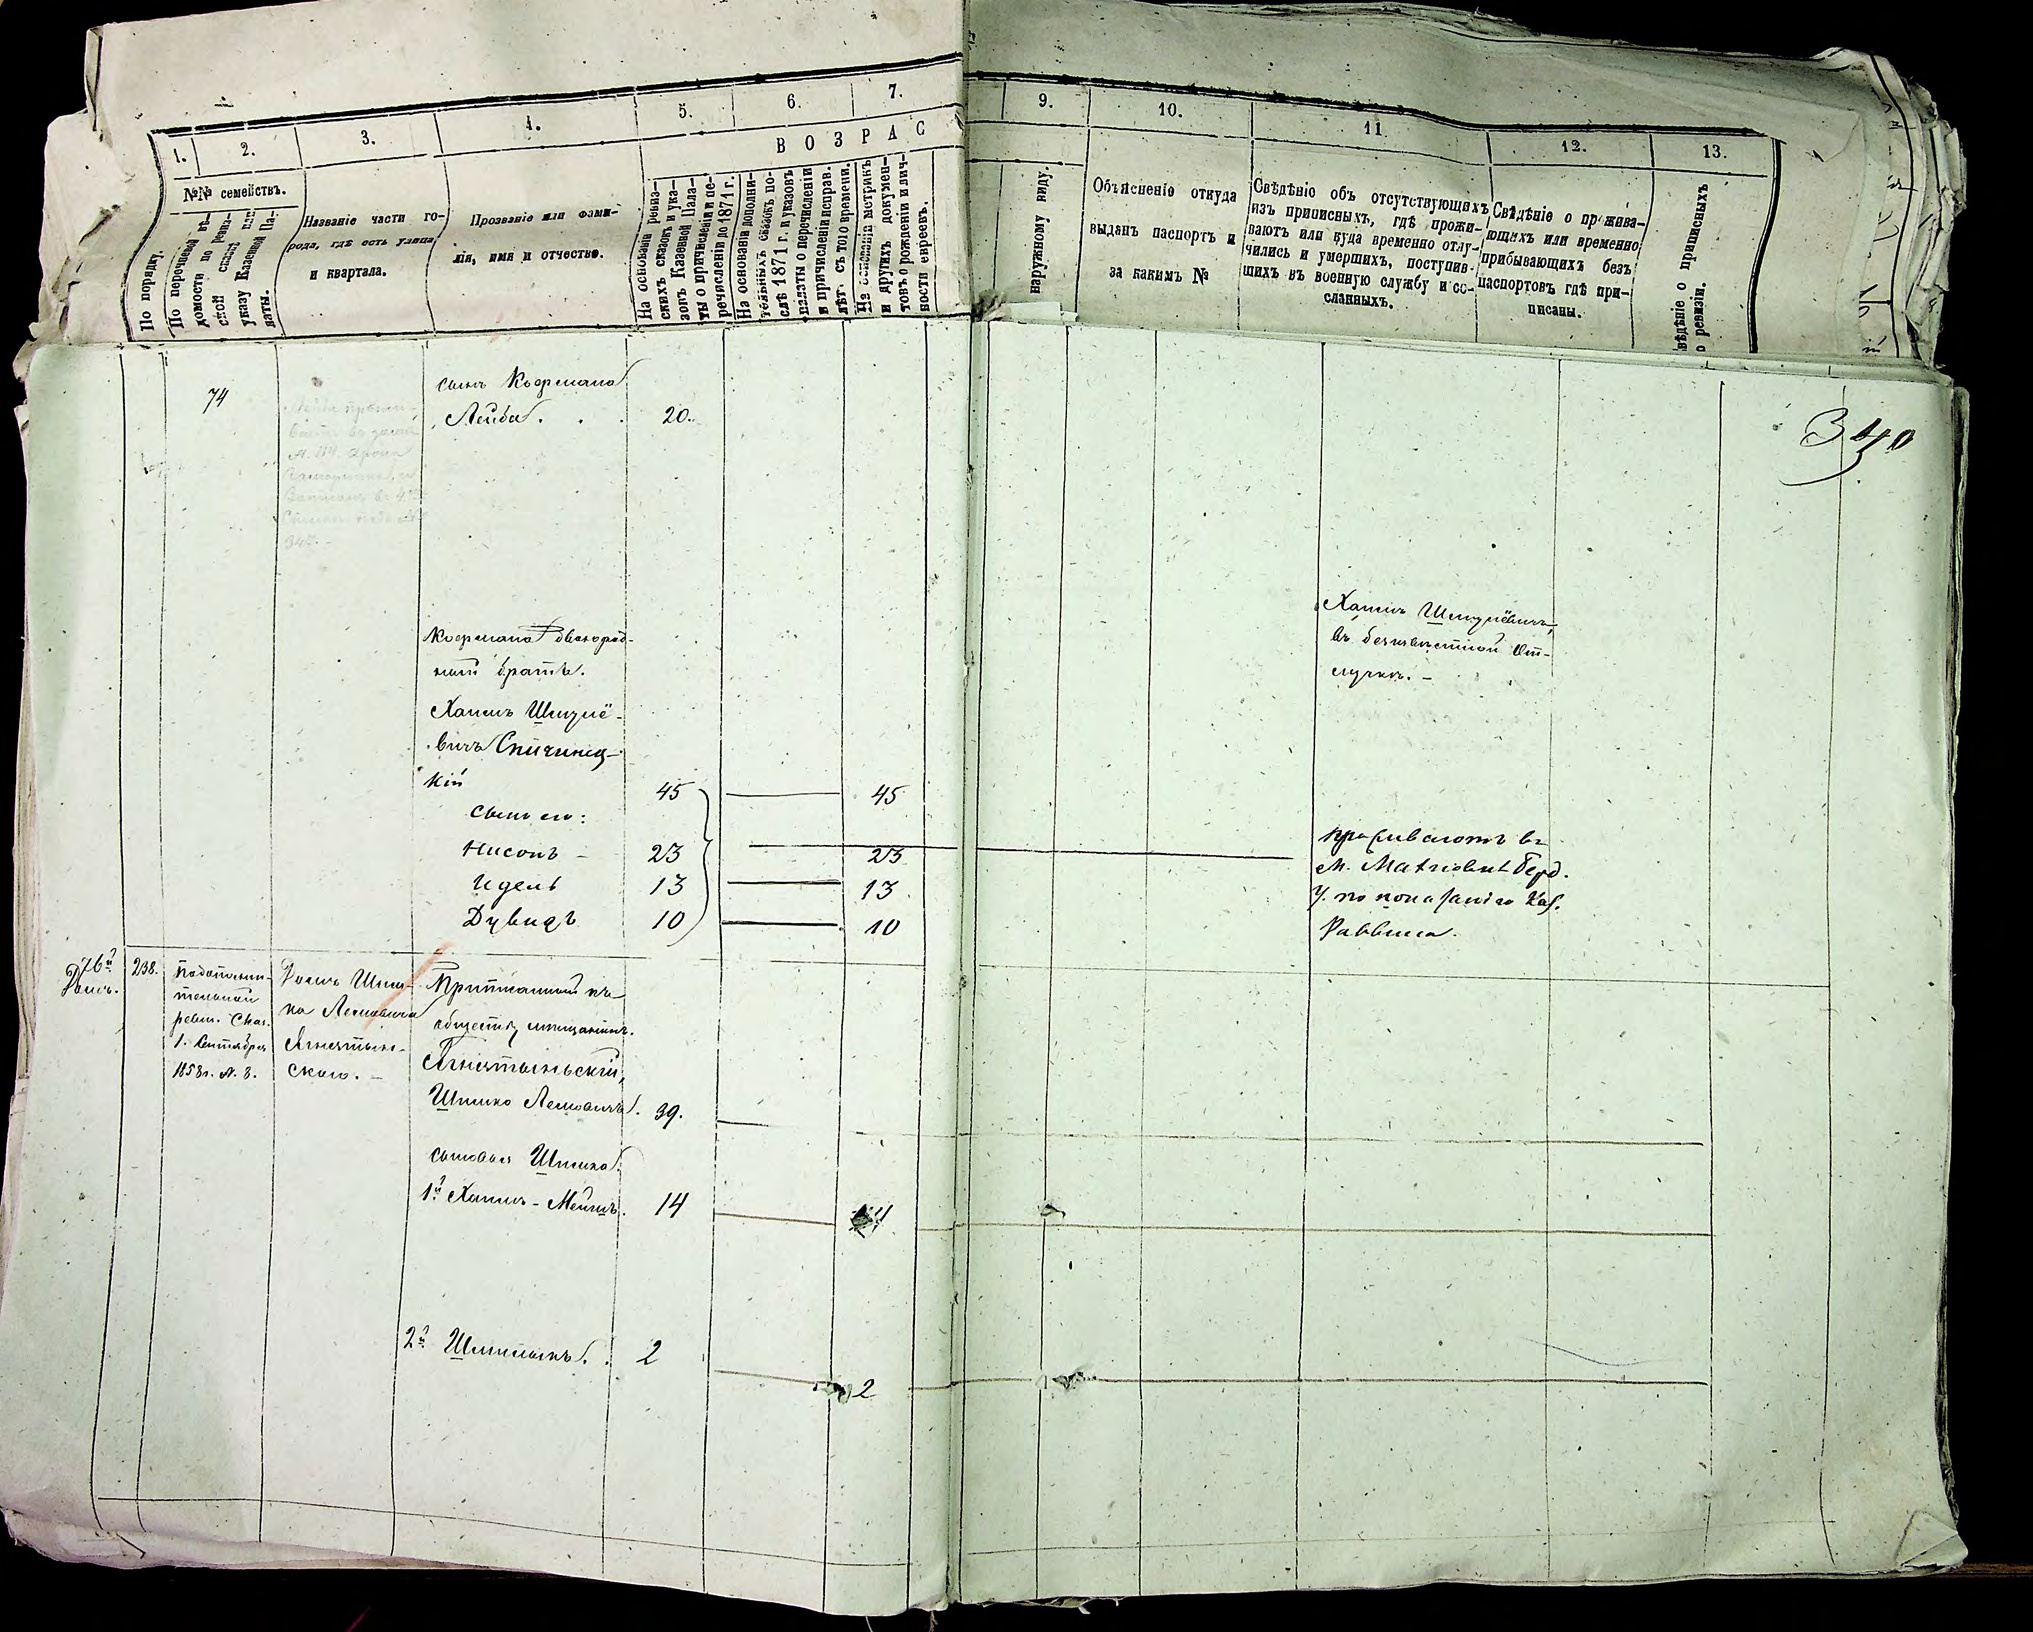 1.
2.
3.
4.
5.
6.
7.
9.
10.
11
12.
13.
В О З Р А С
№№ семействъ.
По порядку.
По перечневой вѣ-
домости по реви-
ской сказкѣ или
указу Казенной Па-
латы.
Названіе части го-
рода, гдѣ есть улица
и квартала.
Прозваніе или фами-
лія, имя и отчество.
На основаніи ревиз-
скихъ сказокъ и ука-
зовъ Казенной Пала-
ты о причисленіи и пе-
речисленіи до 1871 г.
На основаніи дополни-
тельныхъ сказокъ по-
слѣ 1871 г. и указовъ
палаты о перечисленіи
и причисленіи исправ.
лѣт. съ того времени.
На основаніи метрикъ
и другихъ докумен-
товъ о рожденіи и лич-
ности евреевъ.
наружному виду.
Объясненіе откуда
выданъ паспортъ и
за какимъ №
Свѣдѣніе объ отсутствующихъ
изъ приписныхъ, гдѣ прожи-
ваютъ или куда временно отлу-
чились и умершихъ, поступив-
шихъ въ военную службу и со-
сланныхъ.
Свѣдѣніе о прожива-
ющихъ или временно
прибывающихъ безъ
паспортовъ гдѣ при-
писаны.
вѣдѣніе о приписныхъ
о ревизіи.
340
74
сынъ Кьормана
Лейба . . .
20.
347.
Кьормана двоюрод-
ный братъ.
Хаимъ Шмулё-
вичъ Спичинец-
кій
45
45
сыны его:
Нисонъ –
23
23
Идель
13
13
Дувидъ
10
10
Хаимъ Шмулёвичъ,
въ безизвѣстной от-
лучкѣ. –
проживаютъ въ
м. Махновкѣ Берд.
у. по показанію Каз.
Раввина.
238.
По дополни-
тельной
ревиз. сказ.
1. Сентября
1858 г. №. 8.
Домъ Шми-
ского. –
Приписанный къ
обществу мѣщанинъ.
39.
сыновья Шмика
1й Хаимъ - Мейшъ.
14
2й
2
2